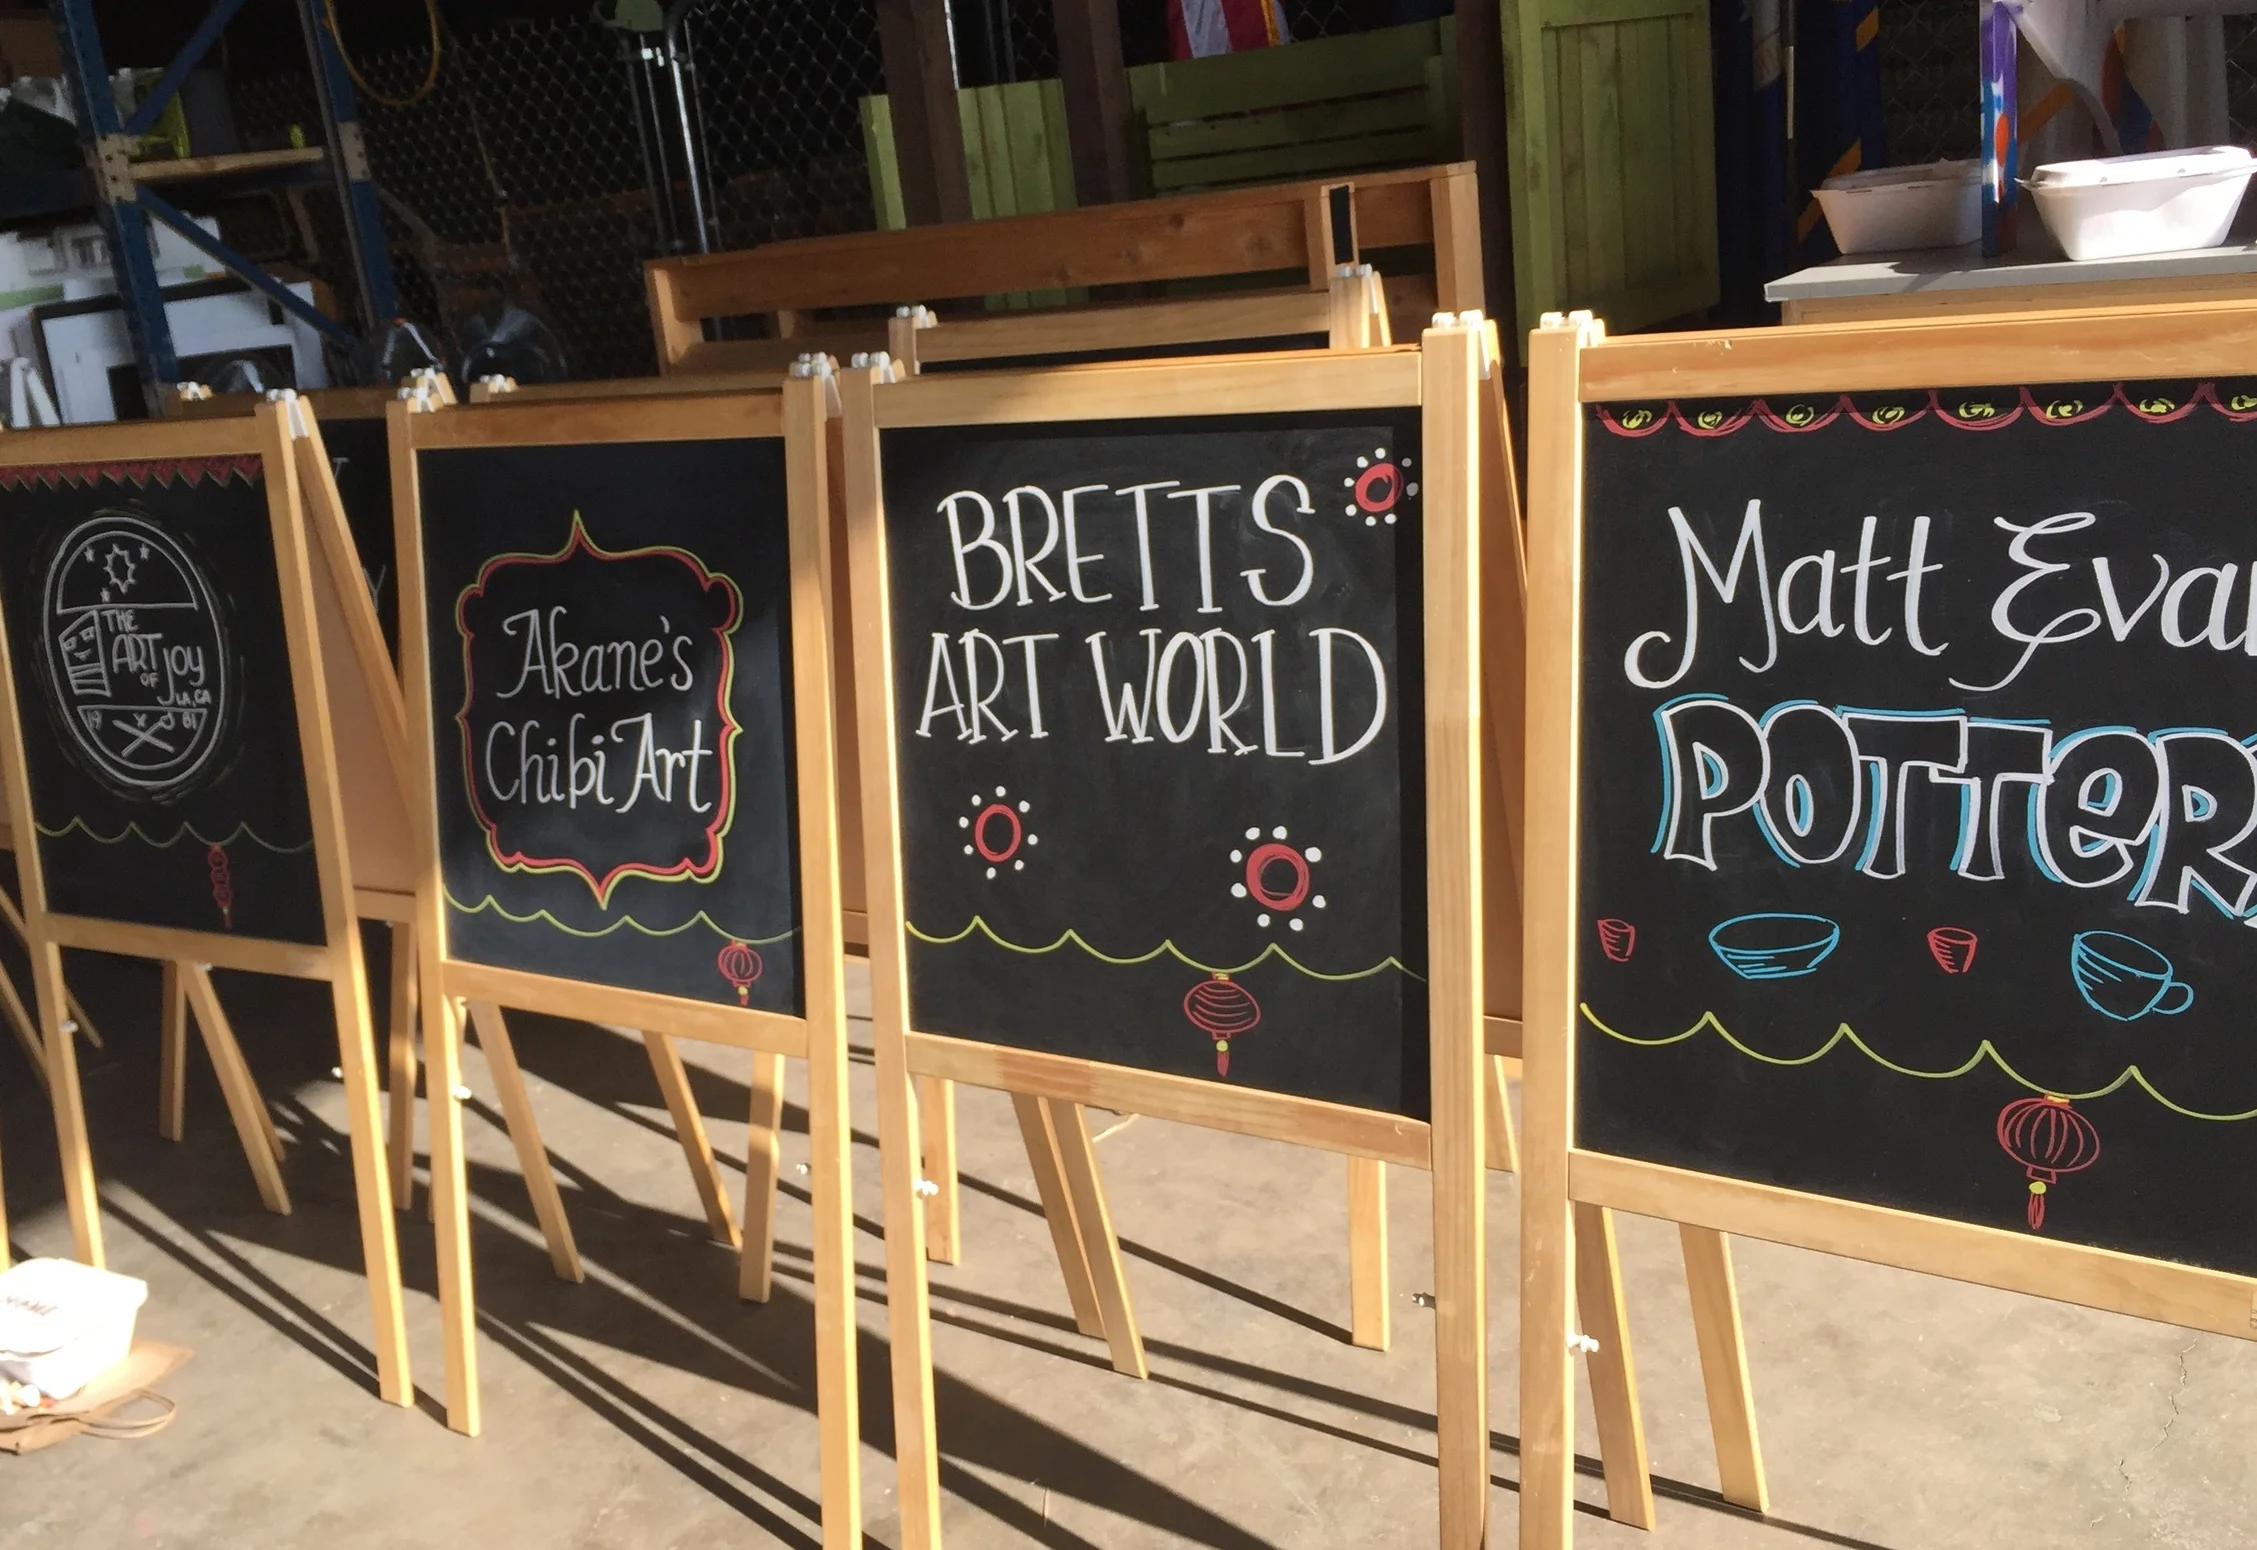 THE
ART
OF
Joy
LA, CA
19 81
Akane's
Chibi Art
BRETTS
ART WORLD
Matt Eva
POTTER